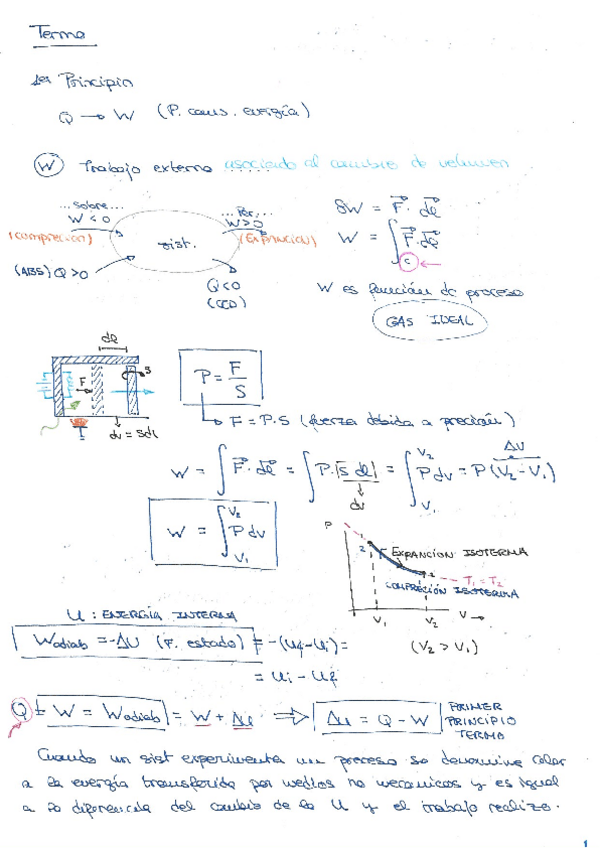 Termo
1er Principio
Q → W (P. cons. energía)
W Trabajo externo asociado al cambio de volumen
...sobre...
W < 0
(compresion)
...Por...
W > 0
(Expancion)
sist.
(ABS) Q > 0
Q < 0
(CED)
δW = F · dl
W = ∫ F · dl
c
W es función de proceso
GAS IDEAL
dl
F
S
dv = Sdl
P = F/S
F = P·S (fuerza debida a preción)
W = ∫ F · dl = ∫ P·|s dl| = ∫ P dv = P(V₂ - V₁)
V₂
V₁
dv
ΔV
W = ∫ P dv
V₂
V₁
P
1
2
EXPANCION ISOTERMA
T₁ = T₂
COMPRECIÓN ISOTERMA
V₁
V₂
V
(V₂ > V₁)
U : ENERGÍA INTERNA
Wadiab = -ΔU (F. estado) = -(Uf - Ui) =
= Ui - Uf
W = Wadiab = W + Δu ⇒ Δu = Q - W
Q
PRIMER
PRINCIPIO
TERMO
Cuando un sist experimenta un proceso se denomina calor
a la energía transferida por medios no mecanicos y es igual
a la diferencia del cambio de la U y el trabajo realizo.
1